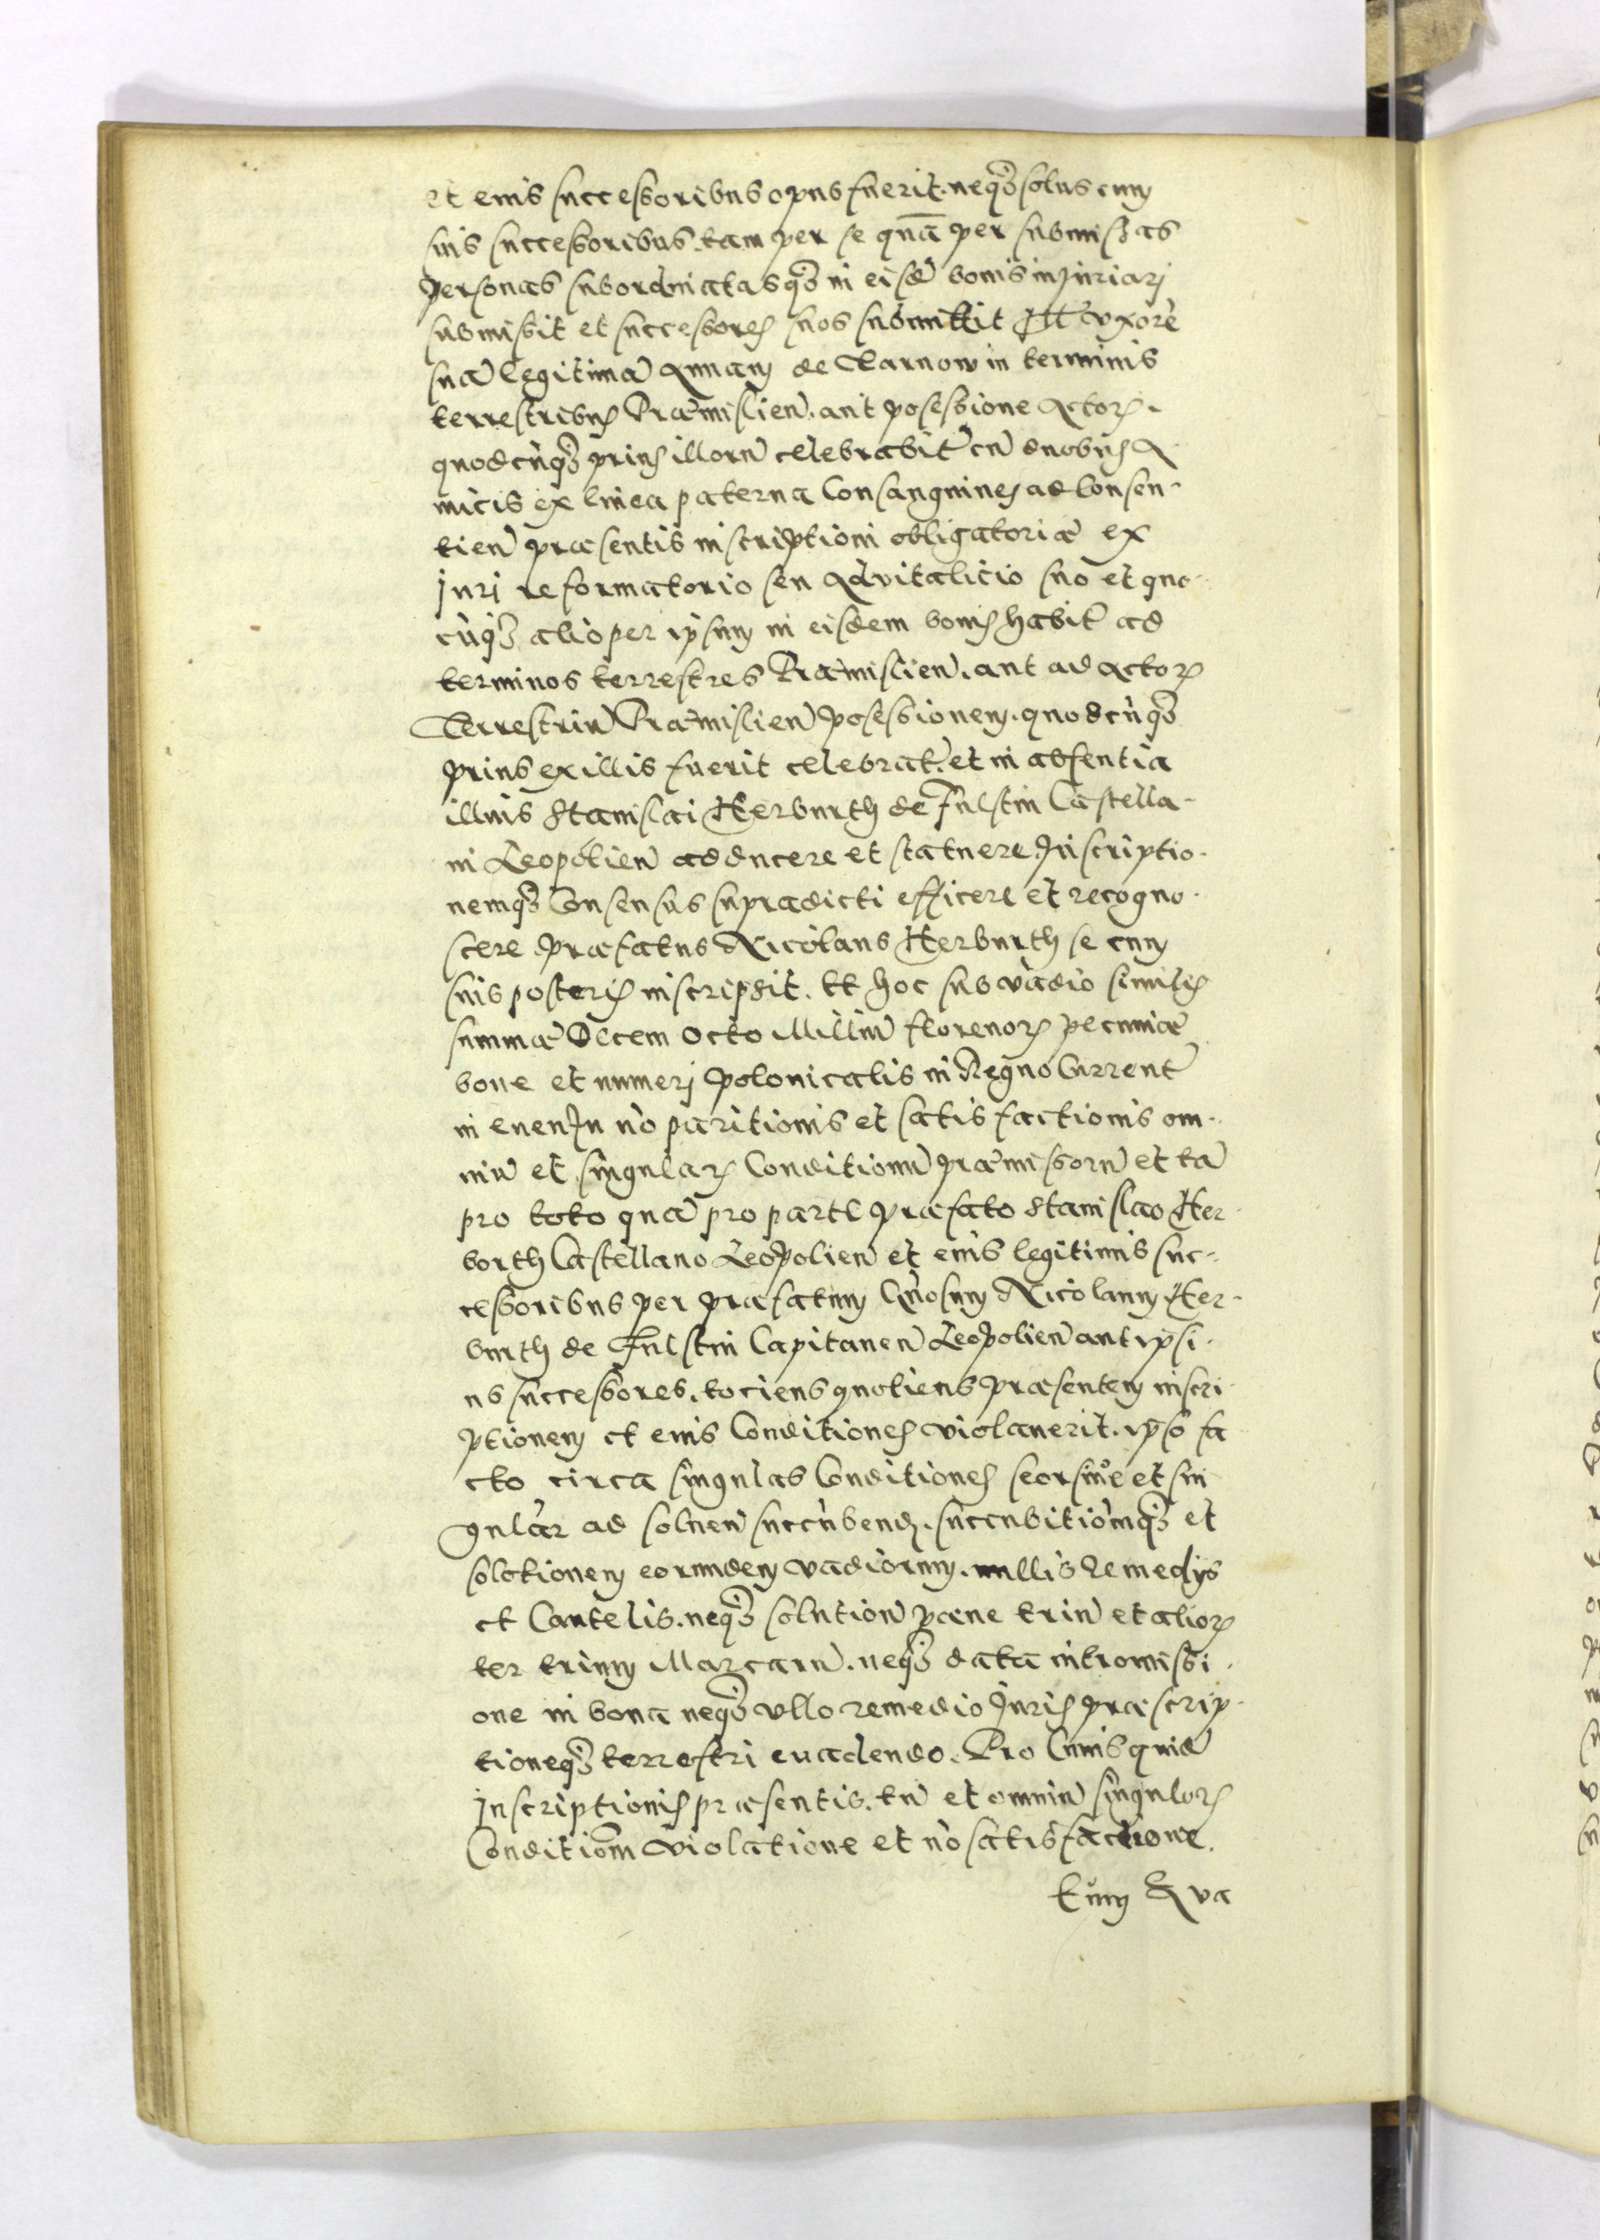 et eius successoribus opus fuerit. neq₃ solus cum
suis successoribus. tam per se quā per submissas
personas subordinatasq₃ in eisdē bonis iniuriari
submisit et successores suos submittit Itē vxorē
suā legitimā Annam de Tarnow in terminis
terrestribus Præmislien̄. aut posessione Actor.
quodcūq₃ prius illorū celebrabit̄ cū duobus A
micis ex linea paterna Consanguineis ad Consen-
tien̄ præsentis inscriptioni obligatoriæ ex
Iuri reformatorio seu Aduitalitio suo et quo-
cūq₃ alio per ipsum in eisdem bonis habit̄ ad
terminos terrestres Præmislien̄. aut ad Actor
Terrestriū Præmislien̄ posessionem. quodcūq₃
prius ex illis fuerit celebrat̄. et in absentia
illius Stanislai Herburth de Fulstin Castella-
ni Leopolien̄ adducere et statuere. Inscriptio-
nemq₃ Consensus supradicti efficere et recogno-
scere præfatus Nicolaus Herburth se cum
suis posteris inscripsit. Et hoc sub vadio similis
summæ Decem Octo Milliū florenor pecuniæ
bone et numeri Polonicalis in Regno Current̄
in euentu nō paritionis et satisfactionis om-
niū et singular Conditionū præmissorū et tā
pro toto quā pro parte præfato Stanislao Her-
borth Castellano Leopolien̄ et eius legitimis suc-
cessoribus per præfatum Gn̄osum Nicolaum Her-
burth de Fulstin Capitaneū Leopolien̄ aut ipsi-
us successores. tociens quotiens præsentem inscri-
ptionem et eius Conditiones violauerit. ipso fa
cto circa singulas Conditiones seorsiue et sin
gular ad soluen̄ succūbend. succubitiōmq₃ et
solotionem eorundem vadiorum. nullis Remedijs
et Cautelis. neq₃ solution̄ pæne triū et alior
ter trium Marcarū. neq₃ data intromissi-
one in bona neq₃ vllo remedio Iuris præscrip-
tioneq₃ terrestri euadendo. Pro Cuius quidē
Inscriptionis præsentis. tū et omniū singulor
Conditiōm violatione et nō satisfactione.
tum Æ va